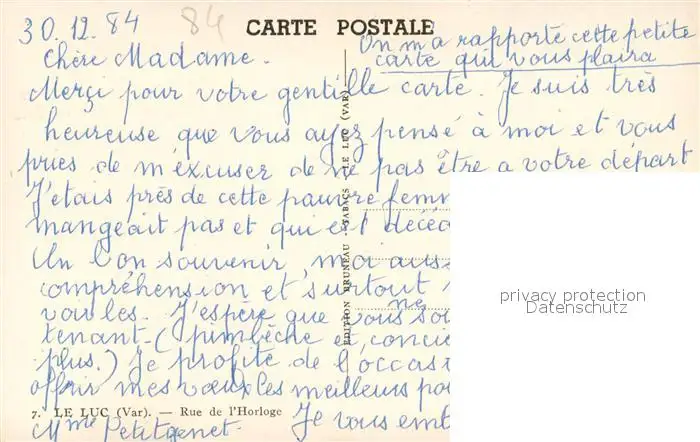 30.12.84 84 CARTE POSTALE
On m'a rapporté cette petite
carte qui vous plaira
Chère Madame.
Merçi pour votre gentille carte. Je suis très
heureuse que vous ayez pensé à moi et vous
pries de m'éxcuser de ne pas être a votre départ
J'etais près de cette pauvre femm
mangeait pas et qui est décéd
Un bon souvenir, moi auss
compréhension et surtout
voir les. J'espère que vous ne so
tenant (pimbêche et concie
plus.) Je profite de l'occas
offrir mes vœux les meilleurs po
7. LE LUC (Var). — Rue de l'Horloge
Je vous emb
Mme Petitgenet.
EDITION BRUNEAU - TABACS - LE LUC (VAR)
privacy protection
Datenschutz